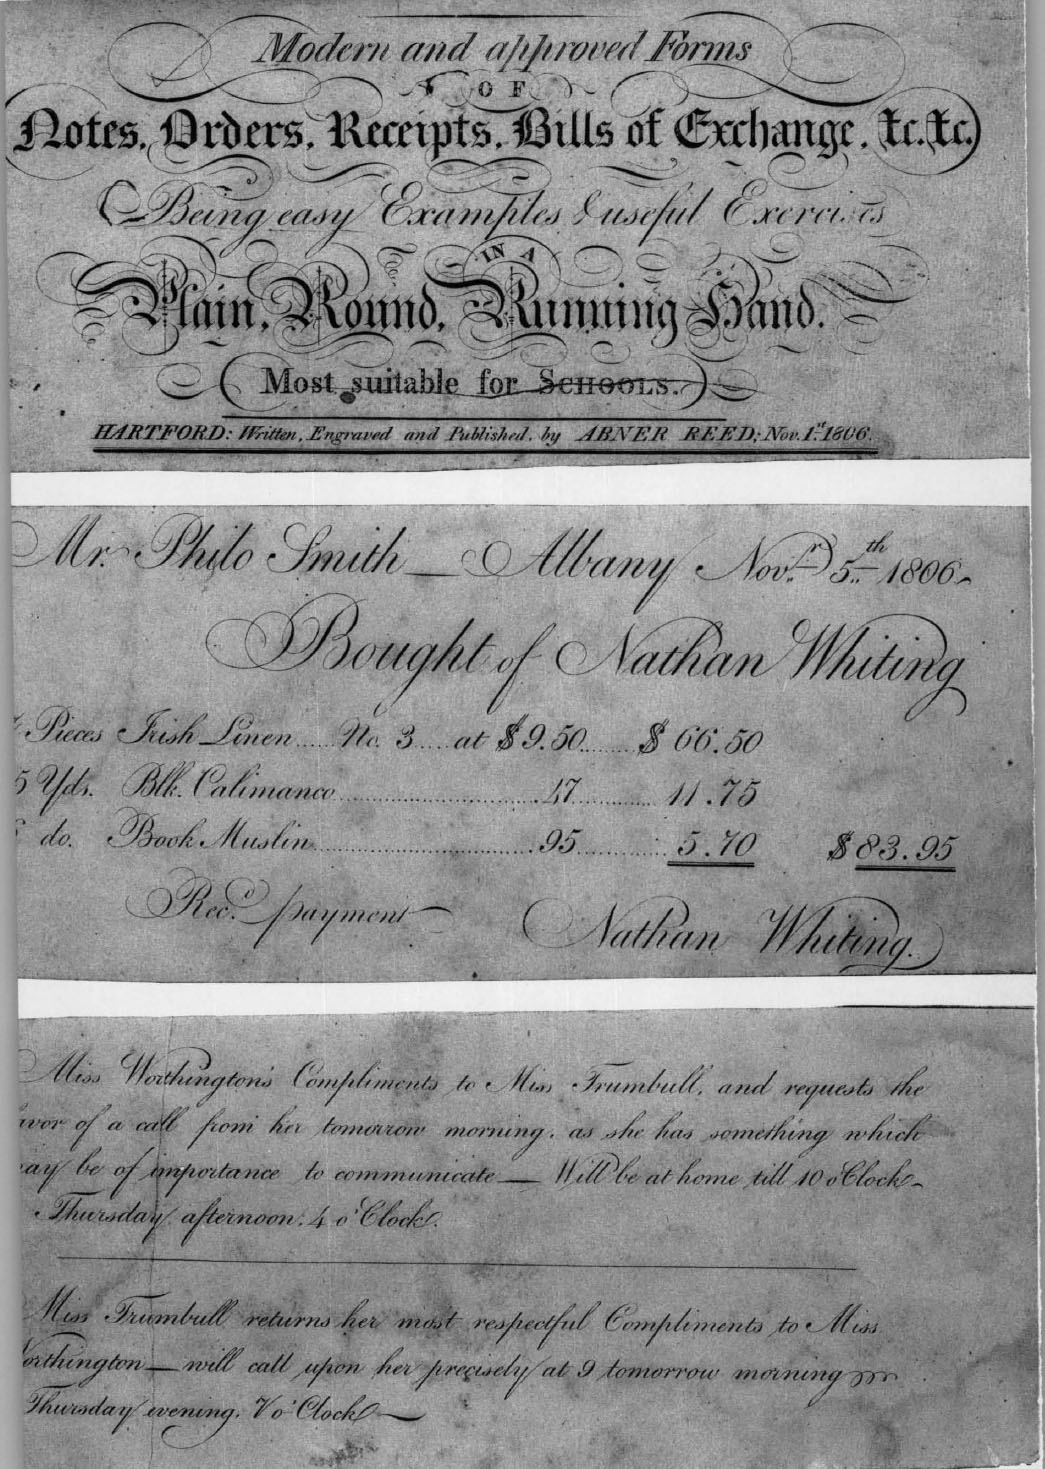 Modern and approved Forms
OF
Notes, Orders, Receipts, Bills of Exchange, &c. &c.
Being easy Examples & useful Exercises
IN A
Plain, Round, Running Hand.
Most suitable for SCHOOLS.
HARTFORD: Written, Engraved and Published, by ABNER REED; Nov. 1.st 1806.
Mr. Philo Smith — Albany Nov.r 5.th 1806
Bought of Nathan Whiting
Pieces Irish Linen No. 3 at $9.50 $ 66.50
5 Yds. Blk. Calimanco 47 11.75
do. Book Muslin .95 5.70 $ 83.95
Rec.d payment Nathan Whiting.
Miss Worthington's Compliments to Miss Trumbull, and requests the
avor of a call from her tomorrow morning, as she has something which
ay be of importance to communicate — Will be at home till 10 o Clock
Thursday afternoon, 4 o'Clock.
Miss Trumbull returns her most respectful Compliments to Miss
orthington — will call upon her precisely at 9 tomorrow morning
Thursday evening, 7 o'Clock —